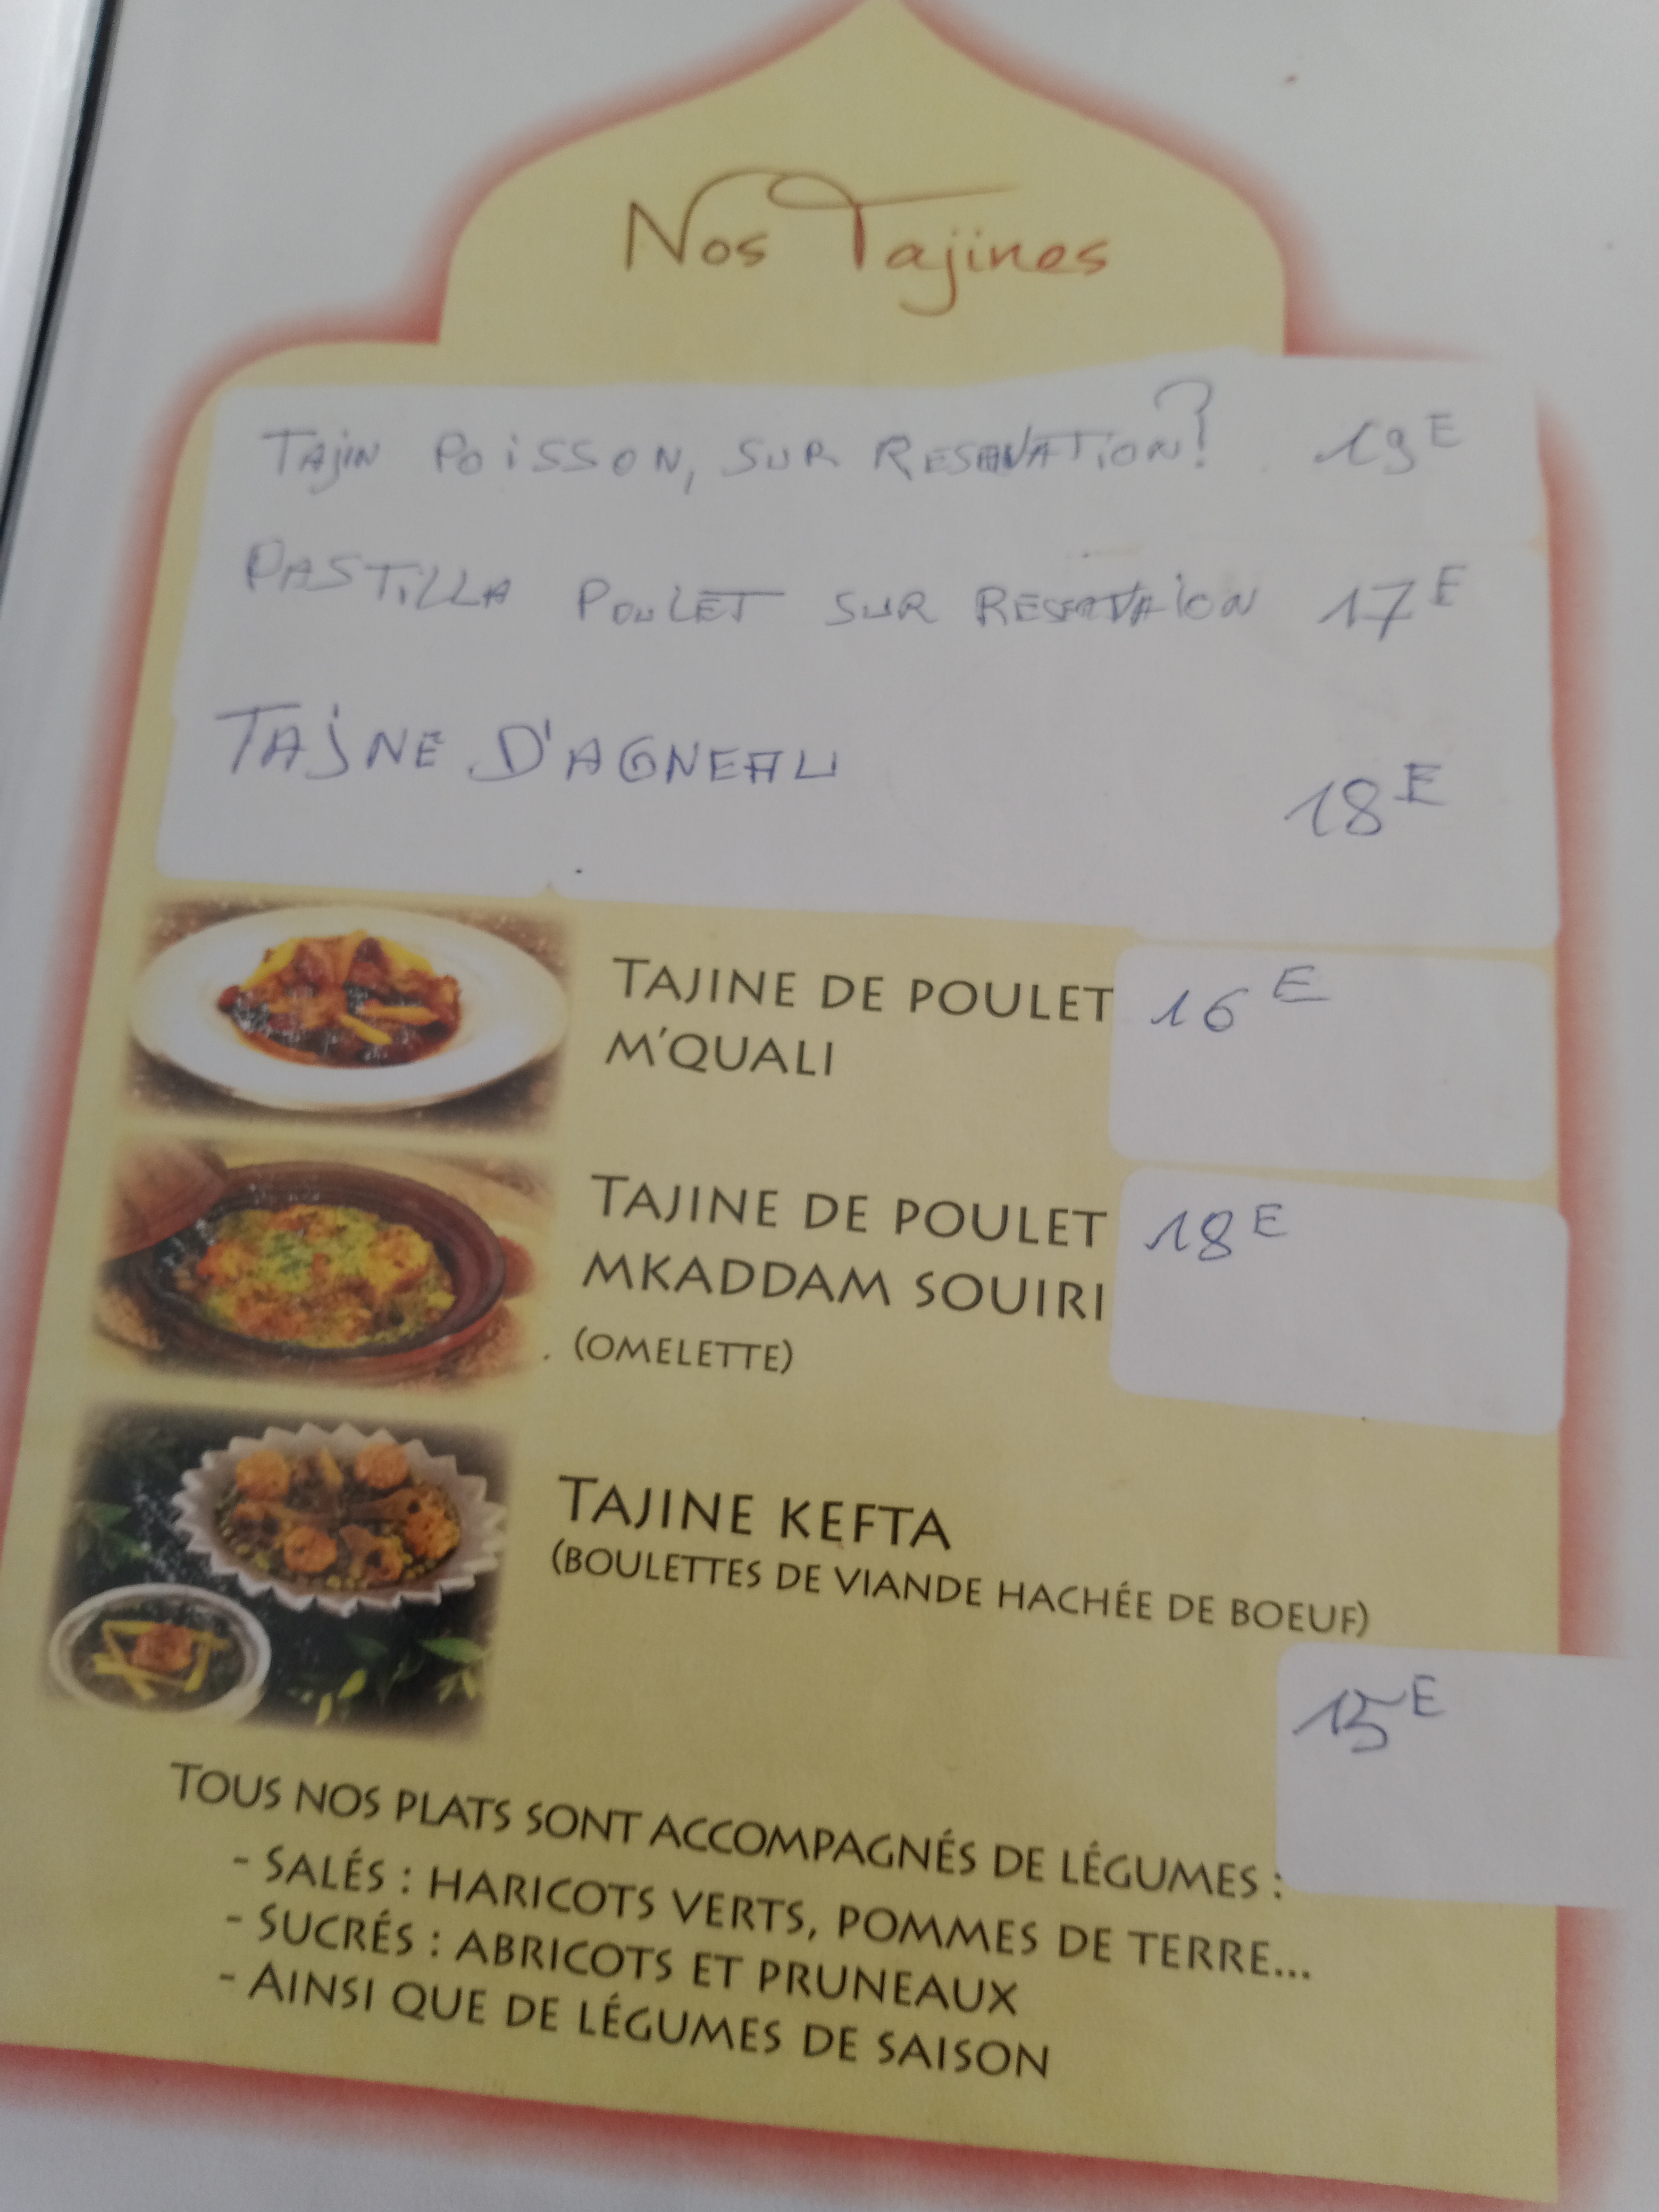 Nos Tajines
TAJIN POISSON, SUR RESERVATION! 19E
PASTILLA POULET SUR RESERVATION 17E
TAJINE D'AGNEAU
18E
TAJINE DE POULET 16E
M'QUALI
TAJINE DE POULET 18E
MKADDAM SOUIRI
(OMELETTE)
TAJINE KEFTA
(BOULETTES DE VIANDE HACHÉE DE BOEUF)
15E
TOUS NOS PLATS SONT ACCOMPAGNÉS DE LÉGUMES :
- SALÉS : HARICOTS VERTS, POMMES DE TERRE...
- SUCRÉS : ABRICOTS ET PRUNEAUX
- AINSI QUE DE LÉGUMES DE SAISON